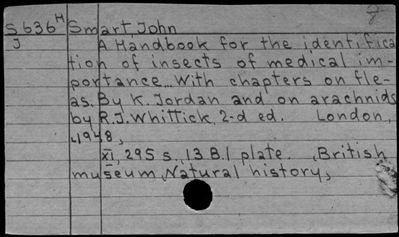 S 636 H Smart, John
J A Handbook for the identifica
tion of insects of medical im-
portance... With chapters on fle-
as. By K. Jordan and on arachnids
by R.J. Whittick, 2-d ed. London,
1948,
XI, 295 s., 13 B.l plate. (British
museum, Natural history)